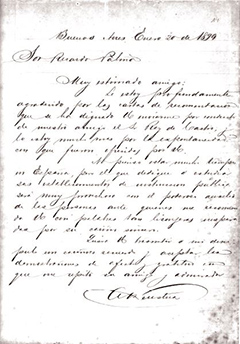 Buenos Aires Enero 20 de 1899
Sor Ricardo Palma
Muy estimado amigo:
Le estoy profundamente
agradecido, por las cartas de recomendacion
que se ha dignado V. enviarme por conducto
de nuestro amigo el Sr Rey de Castro, y
lo estoy mucho mas por la espontaneidad
con que fueron ofrecidas por V.
No pienso estar mucho tiempo
en España, pero el que dedique a estudiar
sus establecimientos de instruccion publica
será muy provechoso con el poderoso apoyo
de las personas ante quienes me recomienda
V. con palabras tan
por su cariño
V. a mi
y acepte las
demostraciones de afecto y gratitud con
que me repito su amigo y admirador